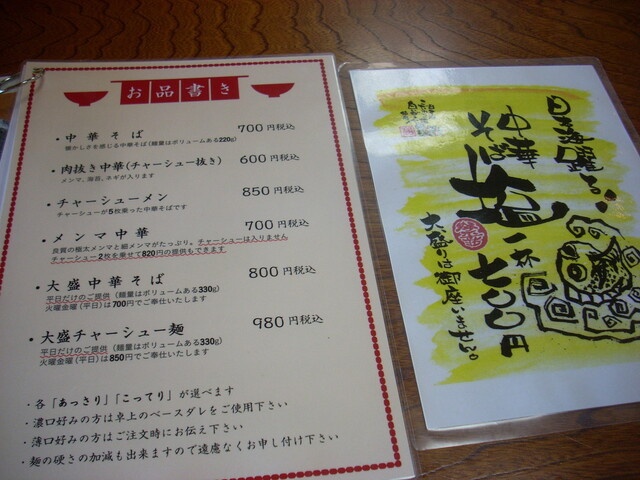 お品書き
・中華そば 700円税込
懐かしさを感じる中華そば(麺量はボリュームある220g)
・肉抜き中華(チャーシュー抜き) 600円税込
メンマ、海苔、ネギが入ります
・チャーシューメン 850円税込
チャーシューが5枚乗った中華そばです
・メンマ中華 700円税込
良質の極太メンマと細メンマがたっぷり。チャーシューは入りません
チャーシュー2枚を乗せて820円の提供もできます
・大盛中華そば 800円税込
平日だけのご提供(麺量はボリュームある330g)
火曜金曜(平日)は700円でご奉仕いたします
・大盛チャーシュー麺 980円税込
平日だけのご提供(麺量はボリュームある330g)
火曜金曜(平日)は850円でご奉仕いたします
・各「あっさり」「こってり」が選べます
・濃口好みの方は卓上のベースダレをご使用下さい
・薄口好みの方はご注文時にお伝え下さい
・麺の硬さの加減も出来ますので遠慮なくお申し付け下さい
日本海躍る!
中華
そば
塩
一杯
七〇〇円
大盛りは御座いません。